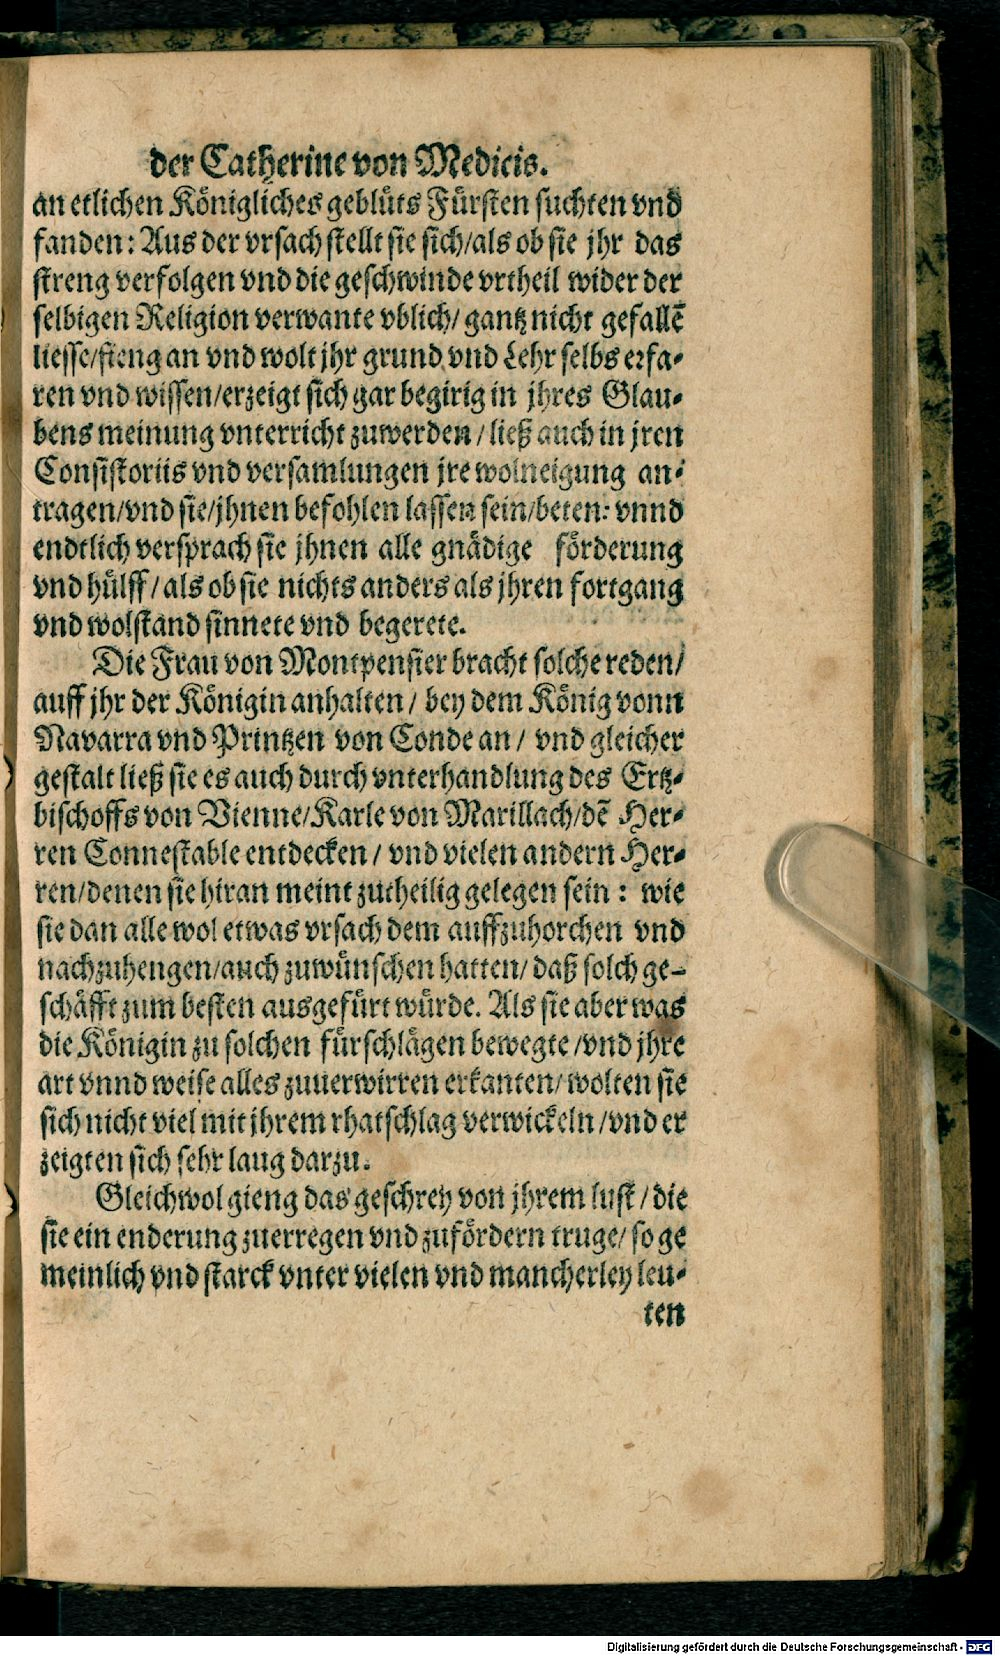 der Catherine von Medicis.
an etlichen Königliches geblüts Fürsten suchten vnd
fanden: Aus der vrsach stellt sie sich/als ob sie jhr das
streng verfolgen vnd die geschwinde vrtheil wider der
selbigen Religion verwante vblich/ gantz nicht gefallē
liesse/fieng an vnd wolt jhr grund vnd Lehr selbs erfa-
ren vnd wissen/erzeigt sich gar begirig in jhres Glau-
bens meinung vnterricht zuwerden/ ließ auch in jren
Consistoriis vnd versamlungen jre wolneigung an-
tragen/vnd sie/jhnen befohlen lassen sein/beten: vnnd
endtlich versprach sie jhnen alle gnädige förderung
vnd hülff/ als ob sie nichts anders als jhren fortgang
vnd wolstand sinnete vnd begerete.
Die Frau von Montpensier bracht solche reden/
auff jhr der Königin anhalten/ bey dem König vonn
Navarra vnd Printzen von Conde an/ vnd gleicher
gestalt ließ sie es auch durch vnterhandlung des Ertz-
bischoffs von Vienne/Karle von Marillach/dē Her-
ren Connestable entdecken/ vnd vielen andern Her-
ren/denen sie hiran meint zutheilig gelegen sein: wie
sie dan alle wol etwas vrsach dem auffzuhorchen vnd
nachzuhengen/auch zuwünschen hatten/ daß solch ge-
schäfft zum besten ausgefürt würde. Als sie aber was
die Königin zu solchen fürschlägen bewegte/vnd jhre
art vnnd weise alles zuuerwirren erkanten/ wolten sie
sich nicht viel mit jhrem rhatschlag verwickeln/vnd er
zeigten sich sehr laug darzu.
Gleichwol gieng das geschrey von jhrem lust/ die
sie ein enderung zuerregen vnd zufördern truge/ so ge
meinlich vnd starck vnter vielen vnd mancherley leu-
ten
Digitalisierung gefördert durch die Deutsche Forschungsgemeinschaft - DFG